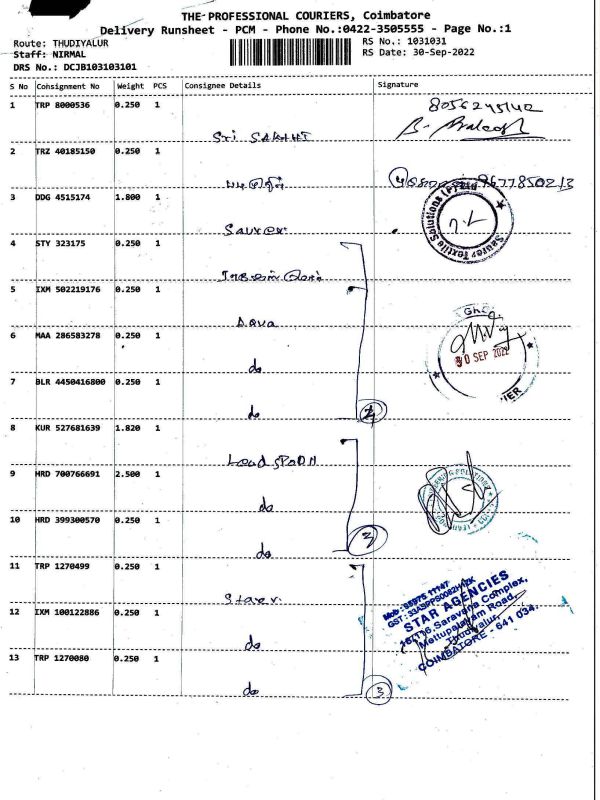 THE PROFESSIONAL COURIERS, Coimbatore
Delivery Runsheet - PCM - Phone No.:0422-3505555 - Page No.:1
Route: THUDIYALUR
RS No.: 1031031
Staff: NIRMAL
RS Date: 30-Sep-2022
DRS No.: DCJB103103101
S No Consignment No Weight PCS Consignee Details Signature
1 TRP 8000536 0.250 1
Sri SAKTHI
2 TRZ 40185150 0.250 1
3 DDG 4515174 1.800 1
Saurer
Saurer Textile Solutions (P) Ltd
4 STY 323175 0.250 1
5 IXM 502219176 0.250 1
Aqua
6 MAA 286583278 0.250 1
do
30 SEP 2022
7 BLR 4450416800 0.250 1
do
4
8 KUR 527681639 1.820 1
Lead SPOON
9 HRD 700766691 2.500 1
do
10 HRD 399300570 0.250 1
do
3
11 TRP 1270499 0.250 1
Starr
STAR AGENCIES
Saravana Complex,
Mettupalayam Road,
Thudiyalur,
COIMBATORE - 641 034.
12 IXM 100122886 0.250 1
do
13 TRP 1270080 0.250 1
do
3